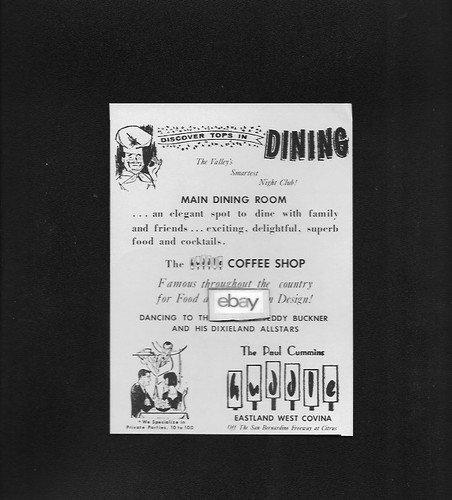 DISCOVER TOPS IN DINING
The Valley's
Smartest
Night Club!
MAIN DINING ROOM
... an elegant spot to dine with family
and friends ... exciting, delightful, superb
food and cocktails.
The huddle COFFEE SHOP
Famous throughout the country
for Food a n Design!
ebay
DANCING TO TH EDDY BUCKNER
AND HIS DIXIELAND ALLSTARS
The Paul Cummins
huddle
"We Specialize in
Private Parties, 10 to 100
EASTLAND WEST COVINA
Off The San Bernardino Freeway at Citrus